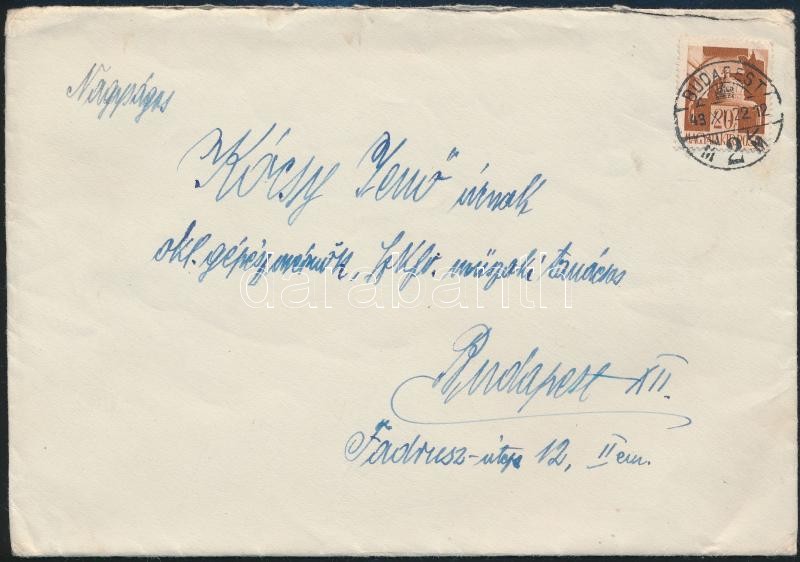 BUDAPEST
43 22 12
20
MAGYAR KIR. POSTA
M 2 M
Nagyságos
"Kócsy Jenő" úrnak
okl. gépészmérnök, műszaki tanácsos
darabanth
Budapest XII.
Fadrusz-utca 12, II em.